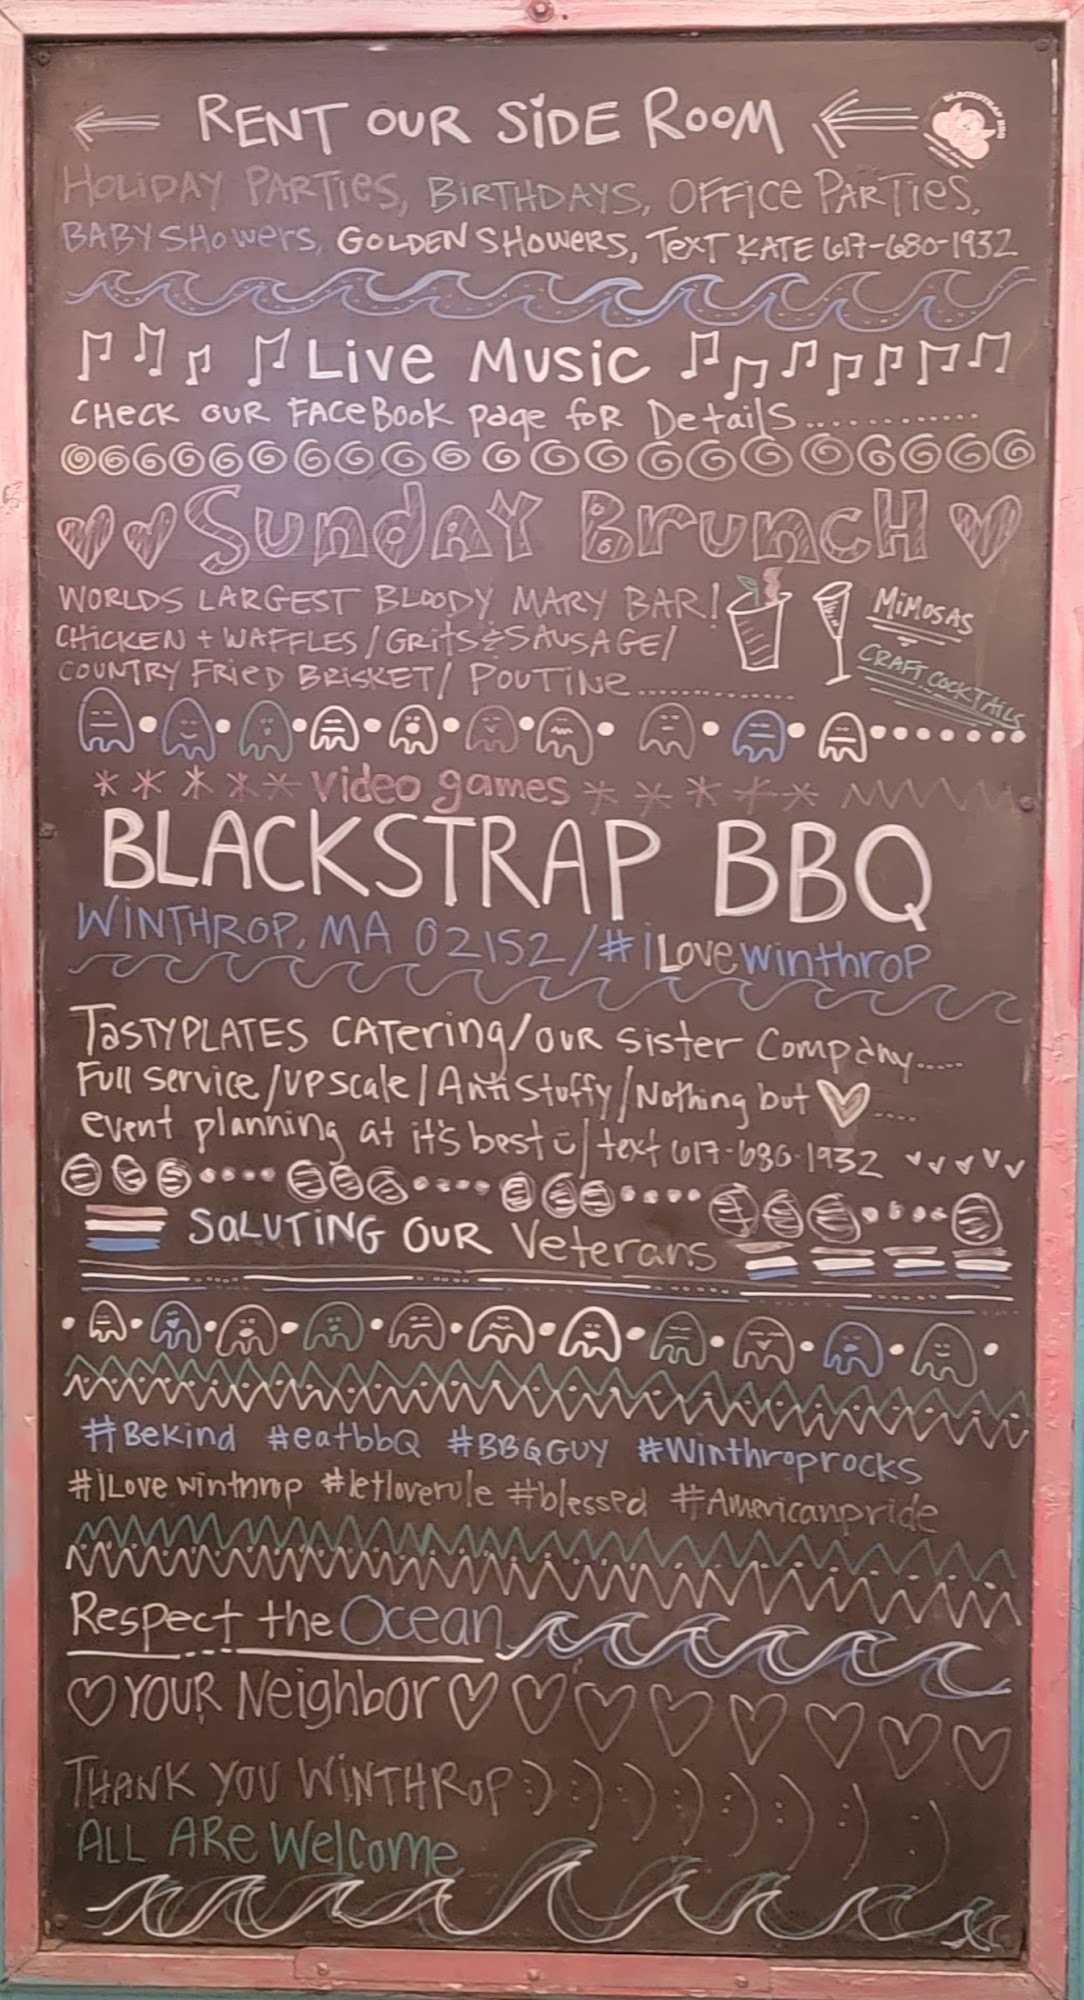 RENT OUR SIDE ROOM
BLACKSTRAP BBQ
HOLIDAY PARTIES, BIRTHDAYS, OFFICE PARTIES,
BABY SHOWERS, GOLDEN SHOWERS, TEXT KATE 617-680-1932
Live Music
CHECK OUR FACEBOOK page foR Details............
SundAY BruncH
WORLDS LARGEST BLOODY MARY BAR!
MiMOSAS
CHICKEN + WAFFLES/GRitS & SAUSAGE/
CRAFT COCKTAILS
COUNTRY FRIED BRISKET/ POUTINE..............
* * * * * video games * * * * *
BLACKSTRAP BBQ
WINTHROP, MA 02152/#iLovewinthroP
TASTYPLATES CATering/OUR Sister Company.....
Full Service/UPSCale/Anti Stuffy/Nothing but ♡....
event planning at it's best :)/text 617-680-1932
SALUTING OUR Veterans
#BeKind #eatbbQ #BBQGUY #Winthroprocks
#iLovewinthrop #letloverule #blessed #Americanpride
Respect the Ocean
♡ YOUR Neighbor ♡ ♡ ♡ ♡ ♡ ♡ ♡ ♡
THANK YOU WINTHROP :) :) :) :) :) :) :) :)
ALL ARE Welcome